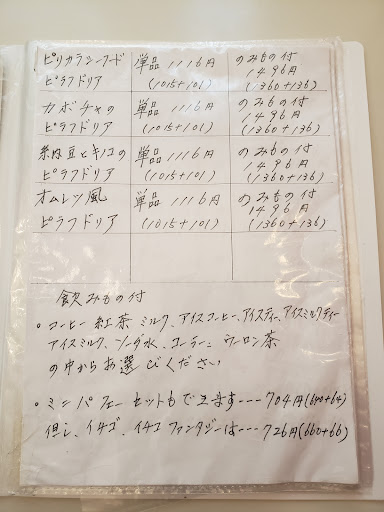 ピリカランフード 単品 1116円 のみもの付
ピラフドリア (1015+101) 1496円
(1360+136)
カボチャの 単品 1116円 のみもの付
ピラフドリア (1015+101) 1496円
(1360+136)
納豆とキノコの 単品 1116円 のみもの付
ピラフドリア (1015+101) 1496円
(1360+136)
オムレツ風 単品 1116円 のみもの付
ピラフドリア (1015+101) 1496円
(1360+136)
飲みもの付
・コーヒー 紅茶 ミルク、アイスコーヒー、アイスティー、アイスミルクティー
アイスミルク、ソーダ水、コーラ、ウーロン茶
の中からお選びください
・ミニパフェーセットもできます---704円(640+64)
但し、イチゴ、イチゴファンタジーは---726円(660+66)